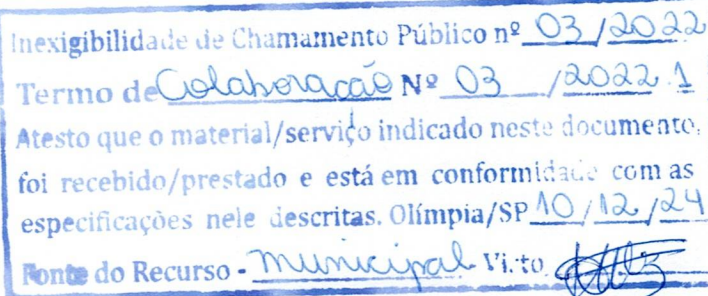 Inexigibilidade de Chamamento Público nº 03/2022
Termo de Colaboração Nº 03 /2022.1
Atesto que o material/serviço indicado neste documento,
foi recebido/prestado e está em conformidade com as
especificações nele descritas. Olímpia/SP 10/12/24
Fonte do Recurso - Municipal Visto.